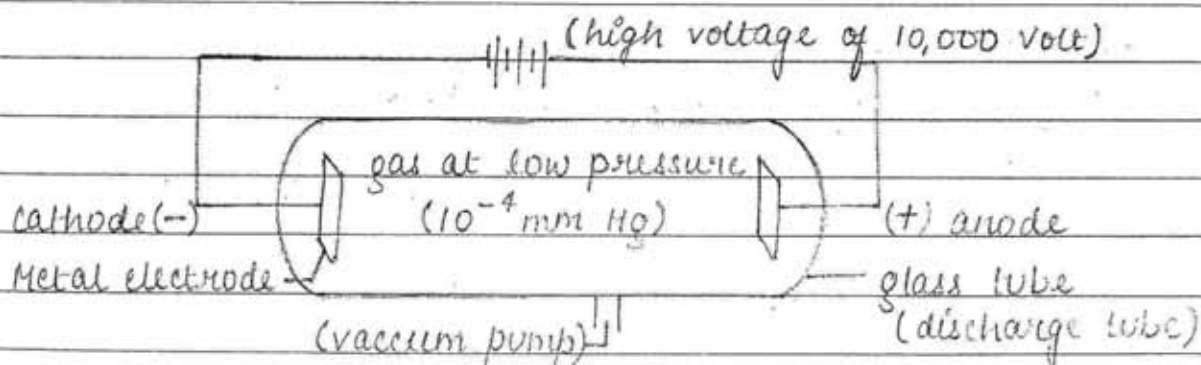 (high voltage of 10,000 volt)
gas at low pressure
(10⁻⁴ mm Hg)
cathode (-)
(+) anode
Metal electrode
glass tube
(discharge tube)
(vaccum pump)